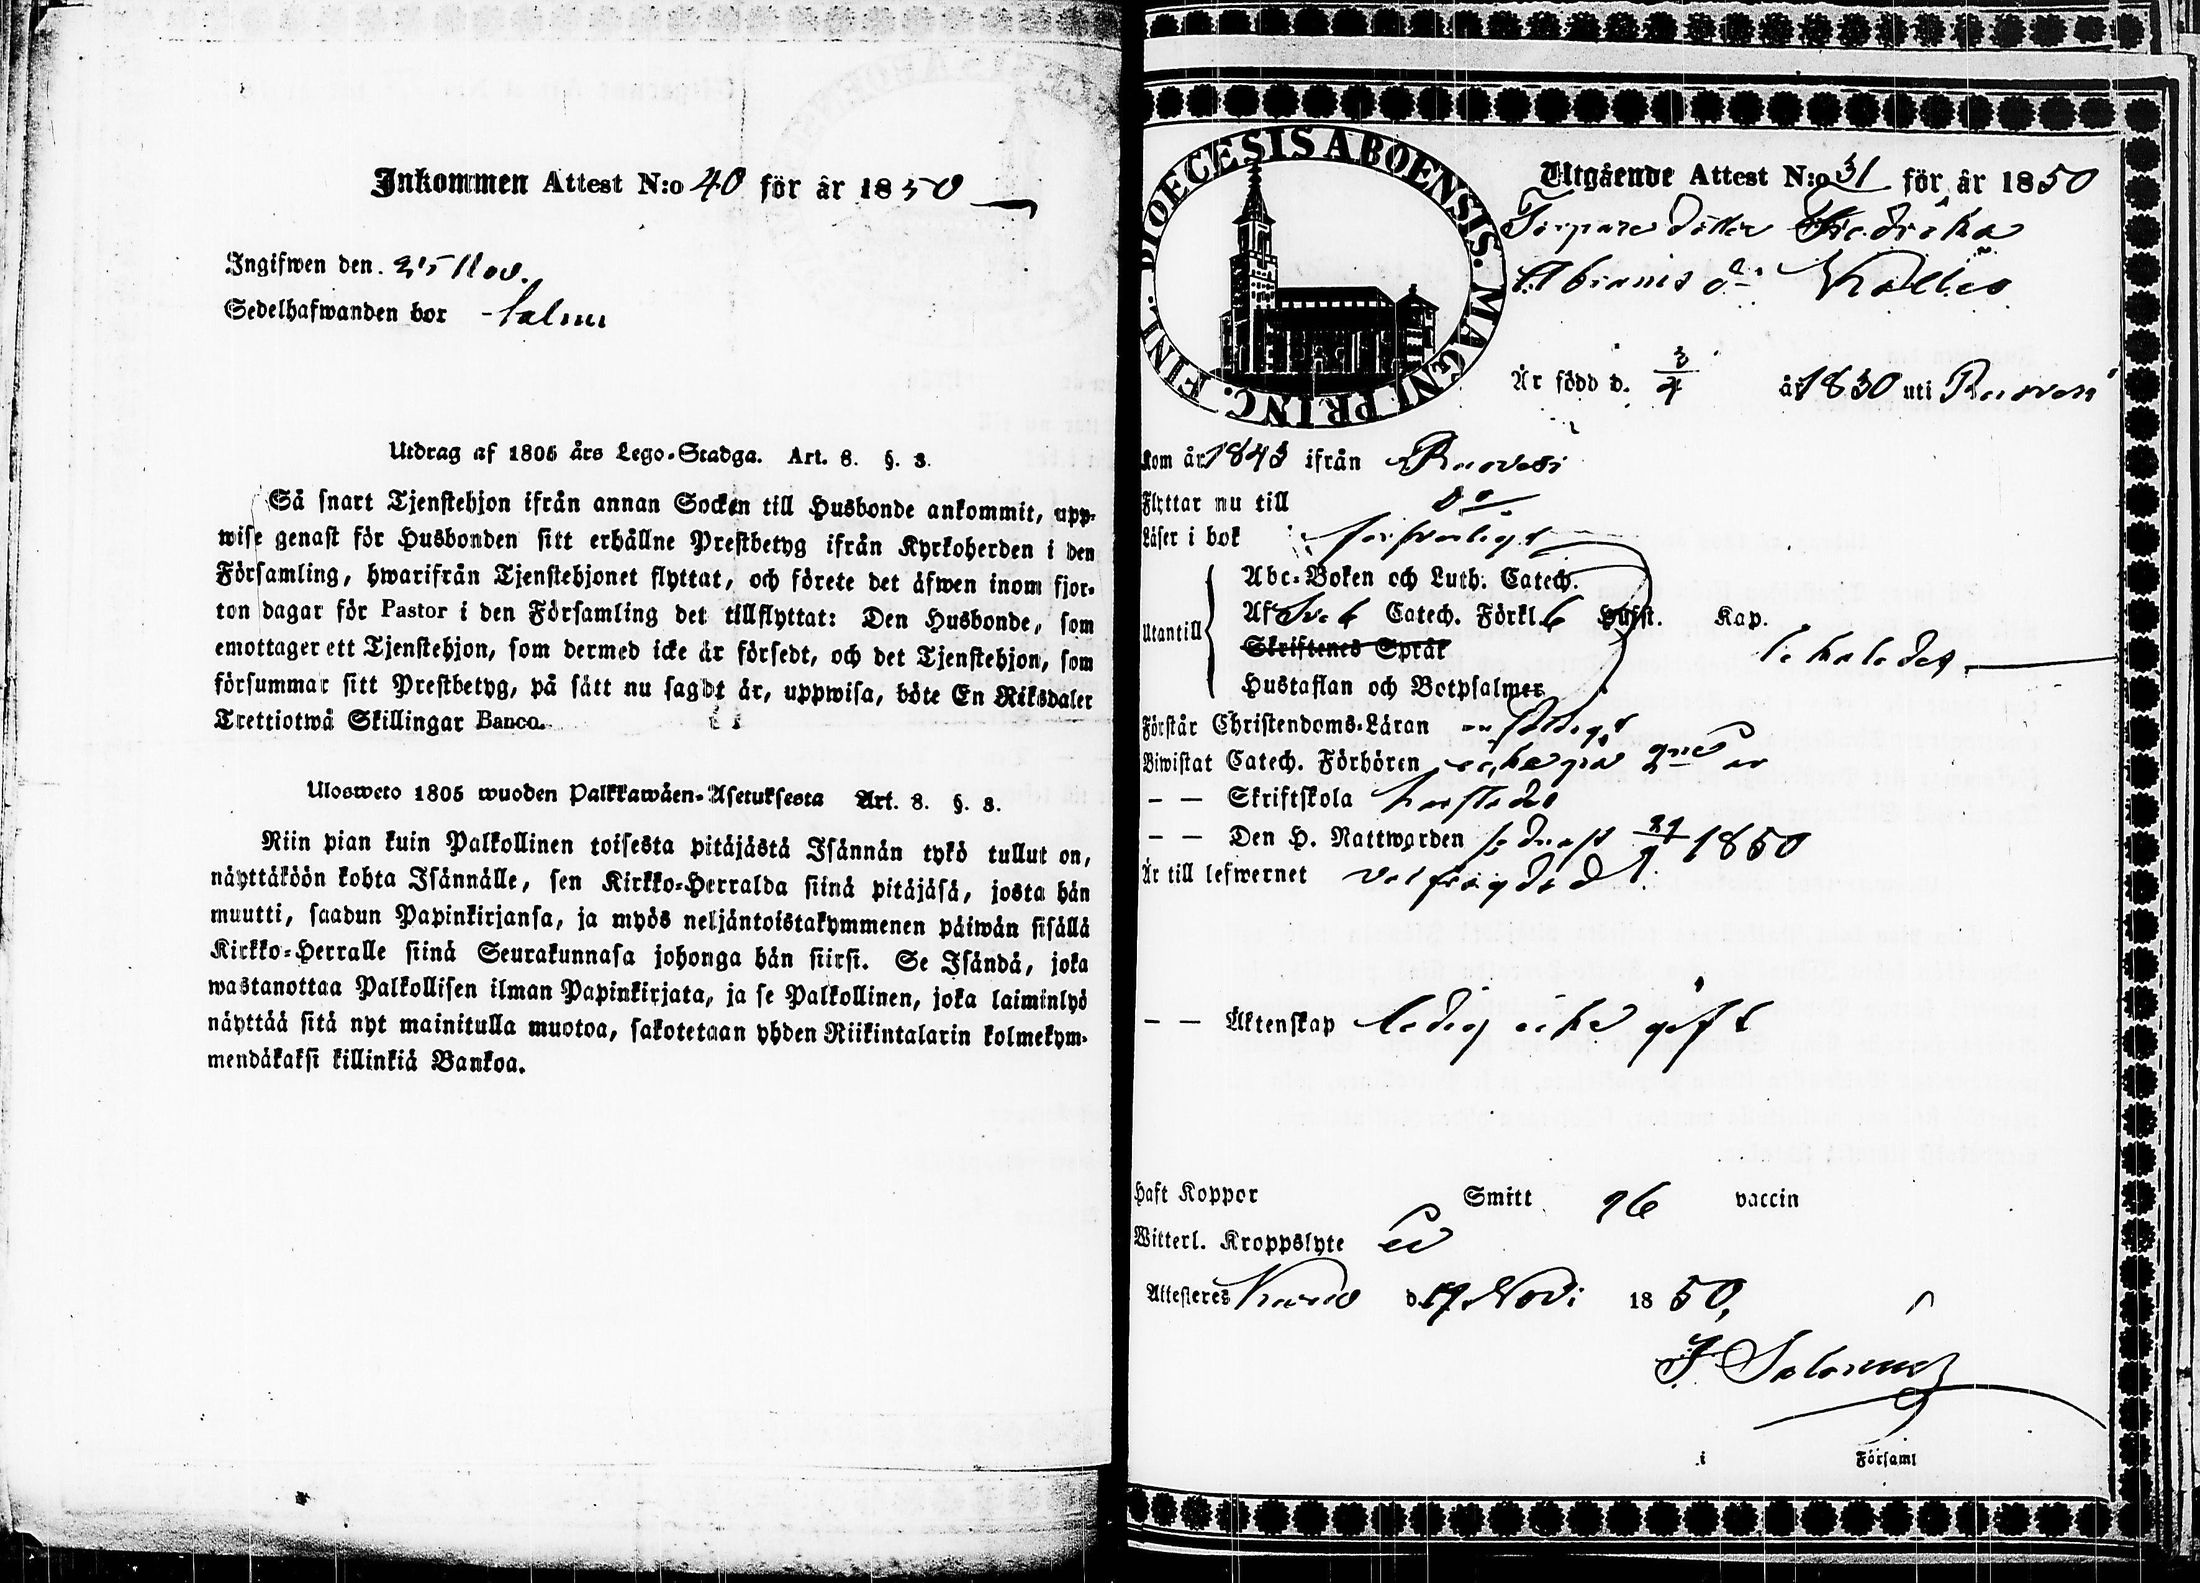 Inkommen Attest N:o 40 för år 1850
Ingifwen den. 25 Nov.
Sedelhafwanden bor Salmi
Utdrag af 1805 års Lego-Stadga. Art. 8. §. 3.
Så snart Tjenstehjon ifrån annan Socken till Husbonde ankommit, upp-
wise genast för Husbonden sitt erhållne Prestbetyg ifrån Kyrkoherden i den
Församling, hwarifrån Tjenstehjonet flyttat, och förete det äfwen inom fjor-
ton dagar för Pastor i den Församling det tillflyttat: Den Husbonde, som
emottager ett Tjenstehjon, som dermed icke är försedt, och det Tjenstehjon, som
försummar sitt Prestbetyg, på sätt nu sagdt är, uppwisa, böte En Riksdaler
Trettiotwå Skillingar Banco.
Ulosweto 1805 wuoden Palkkawäen-Asetuksesta Art. 8. §. 3.
Niin pian kuin Palkollinen toisesta pitäjästä Isännän tykö tullut on,
näyttäköön kohta Isännälle, sen Kirkko-Herralda siinä pitäjäsä, josta hän
muutti, saadun Papinkirjansa, ja myös neljäntoistakymmenen päiwän sisällä
Kirkko-Herralle siinä Seurakunnasa johonga hän siirsi. Se Isändä, joka
wastanottaa Palkollisen ilman Papinkirjata, ja se Palkollinen, joka laiminlyö
näyttää sitä nyt mainitulla muotoa, sakotetaan yhden Riikintalarin kolmekym-
mendäkaksi killinkiä Bankoa.
DIOECESIS ABOENSIS. MAGNI PRINC. FINL.
Utgående Attest N:o 31 för år 1850
Torpare dotter Fredrika
Abramsdr Kallio
Är född d. 3/4 år 1830 uti Ruovesi
Kom år 1843 ifrån Ruovesi
Flyttar nu till do
Läser i bok försvarligt
Utantill
Abc-Boken och Luth. Catech.
Af Sveb Catech. Förkl. 6 Hufst. Kap.
Skriftenes Språk
Hustaflan och Botpsalmer
Förstår Christendoms-Läran
Biwistat Catech. Förhören icke på
— — Skriftskola
— — Den H. Nattwarden sednast 1850
Är till lefwernet välfrägdad
— — Äktenskap ledig icke gift
Haft Koppor Smitt vaccin
Witterl. Kroppslyte
Attesteres d. 17 Nov: 1850,
i Församl